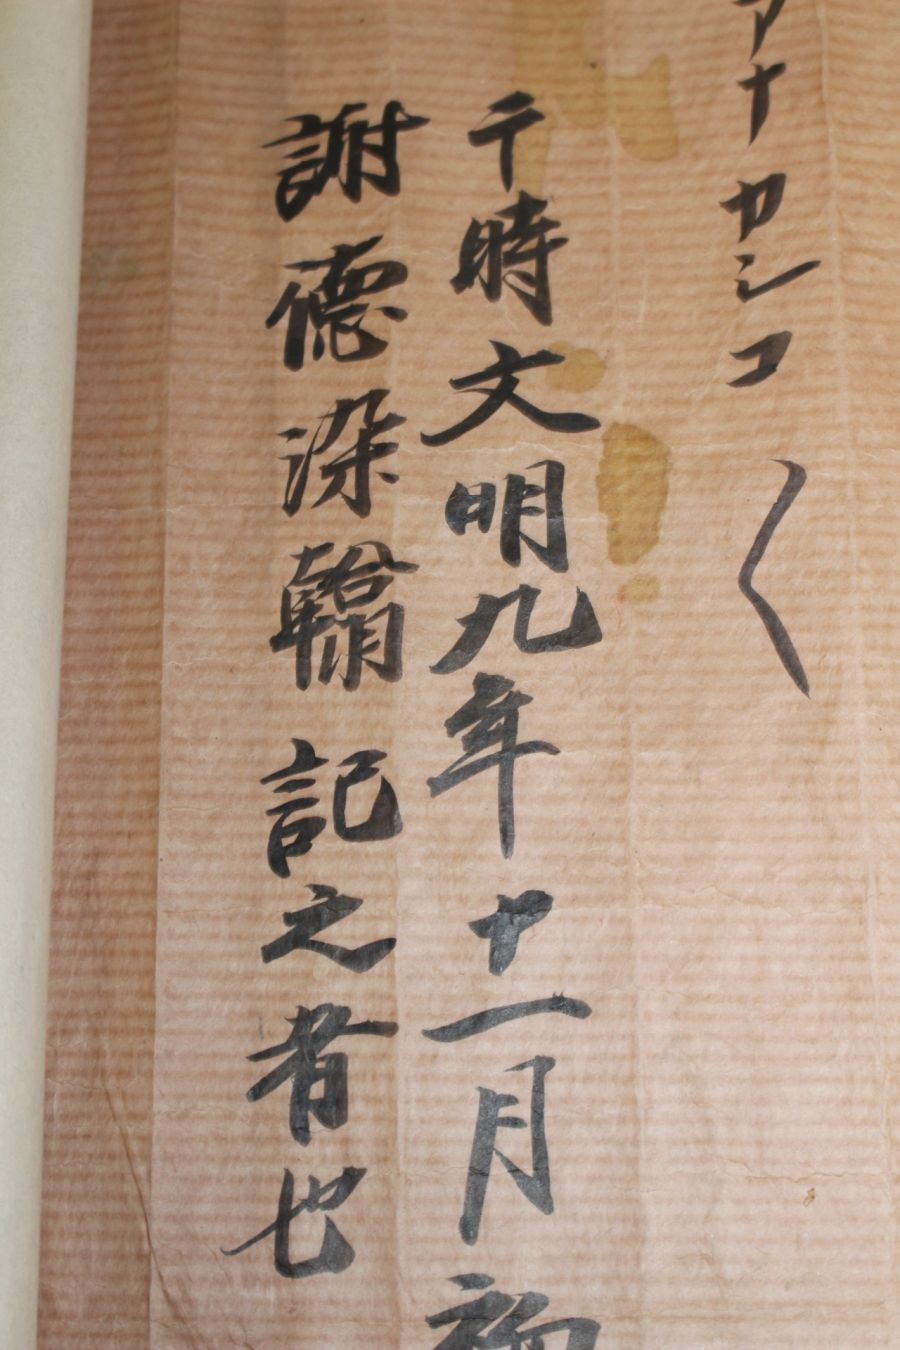 アナカシコ〱
于時文明九年十一月初
謝徳染翰記之者也